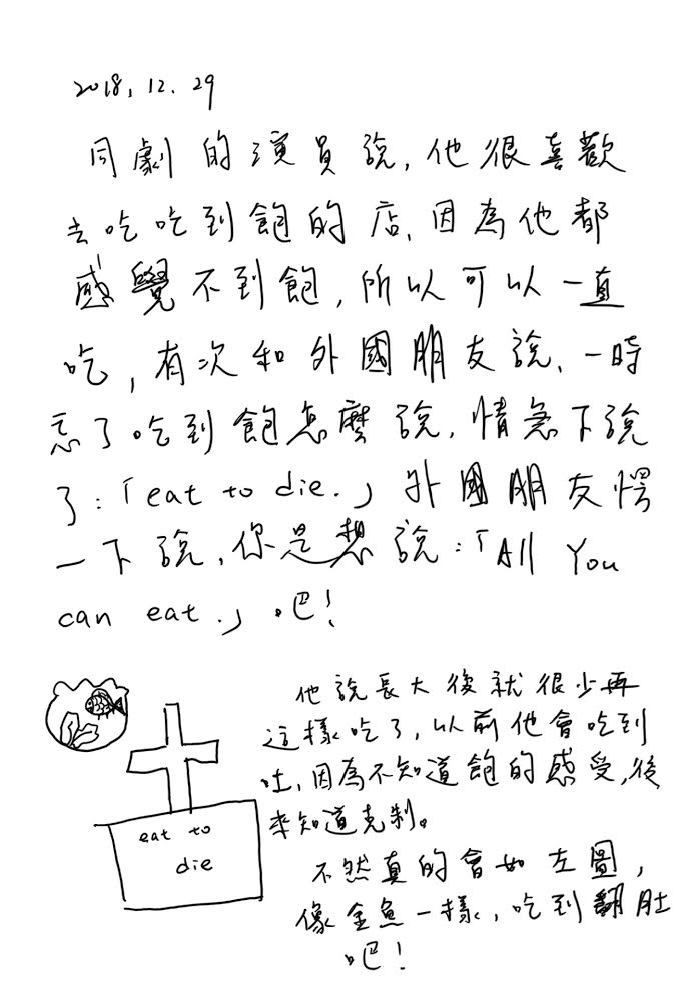 2018.12.29
同劇的演員說,他很喜歡
去吃吃到飽的店,因為他都
感覺不到飽,所以可以一直
吃,有次和外國朋友說,一時
忘了吃到飽怎麼說,情急下說
了:「eat to die.」外國朋友愣
一下說,你是想說:「All You
can eat.」吧!
他說長大後就很少再
這樣吃了,以前他會吃到
吐,因為不知道飽的感受,後
來知道克制。
不然真的會如左圖,
像金魚一樣,吃到翻肚
吧!
eat to
die